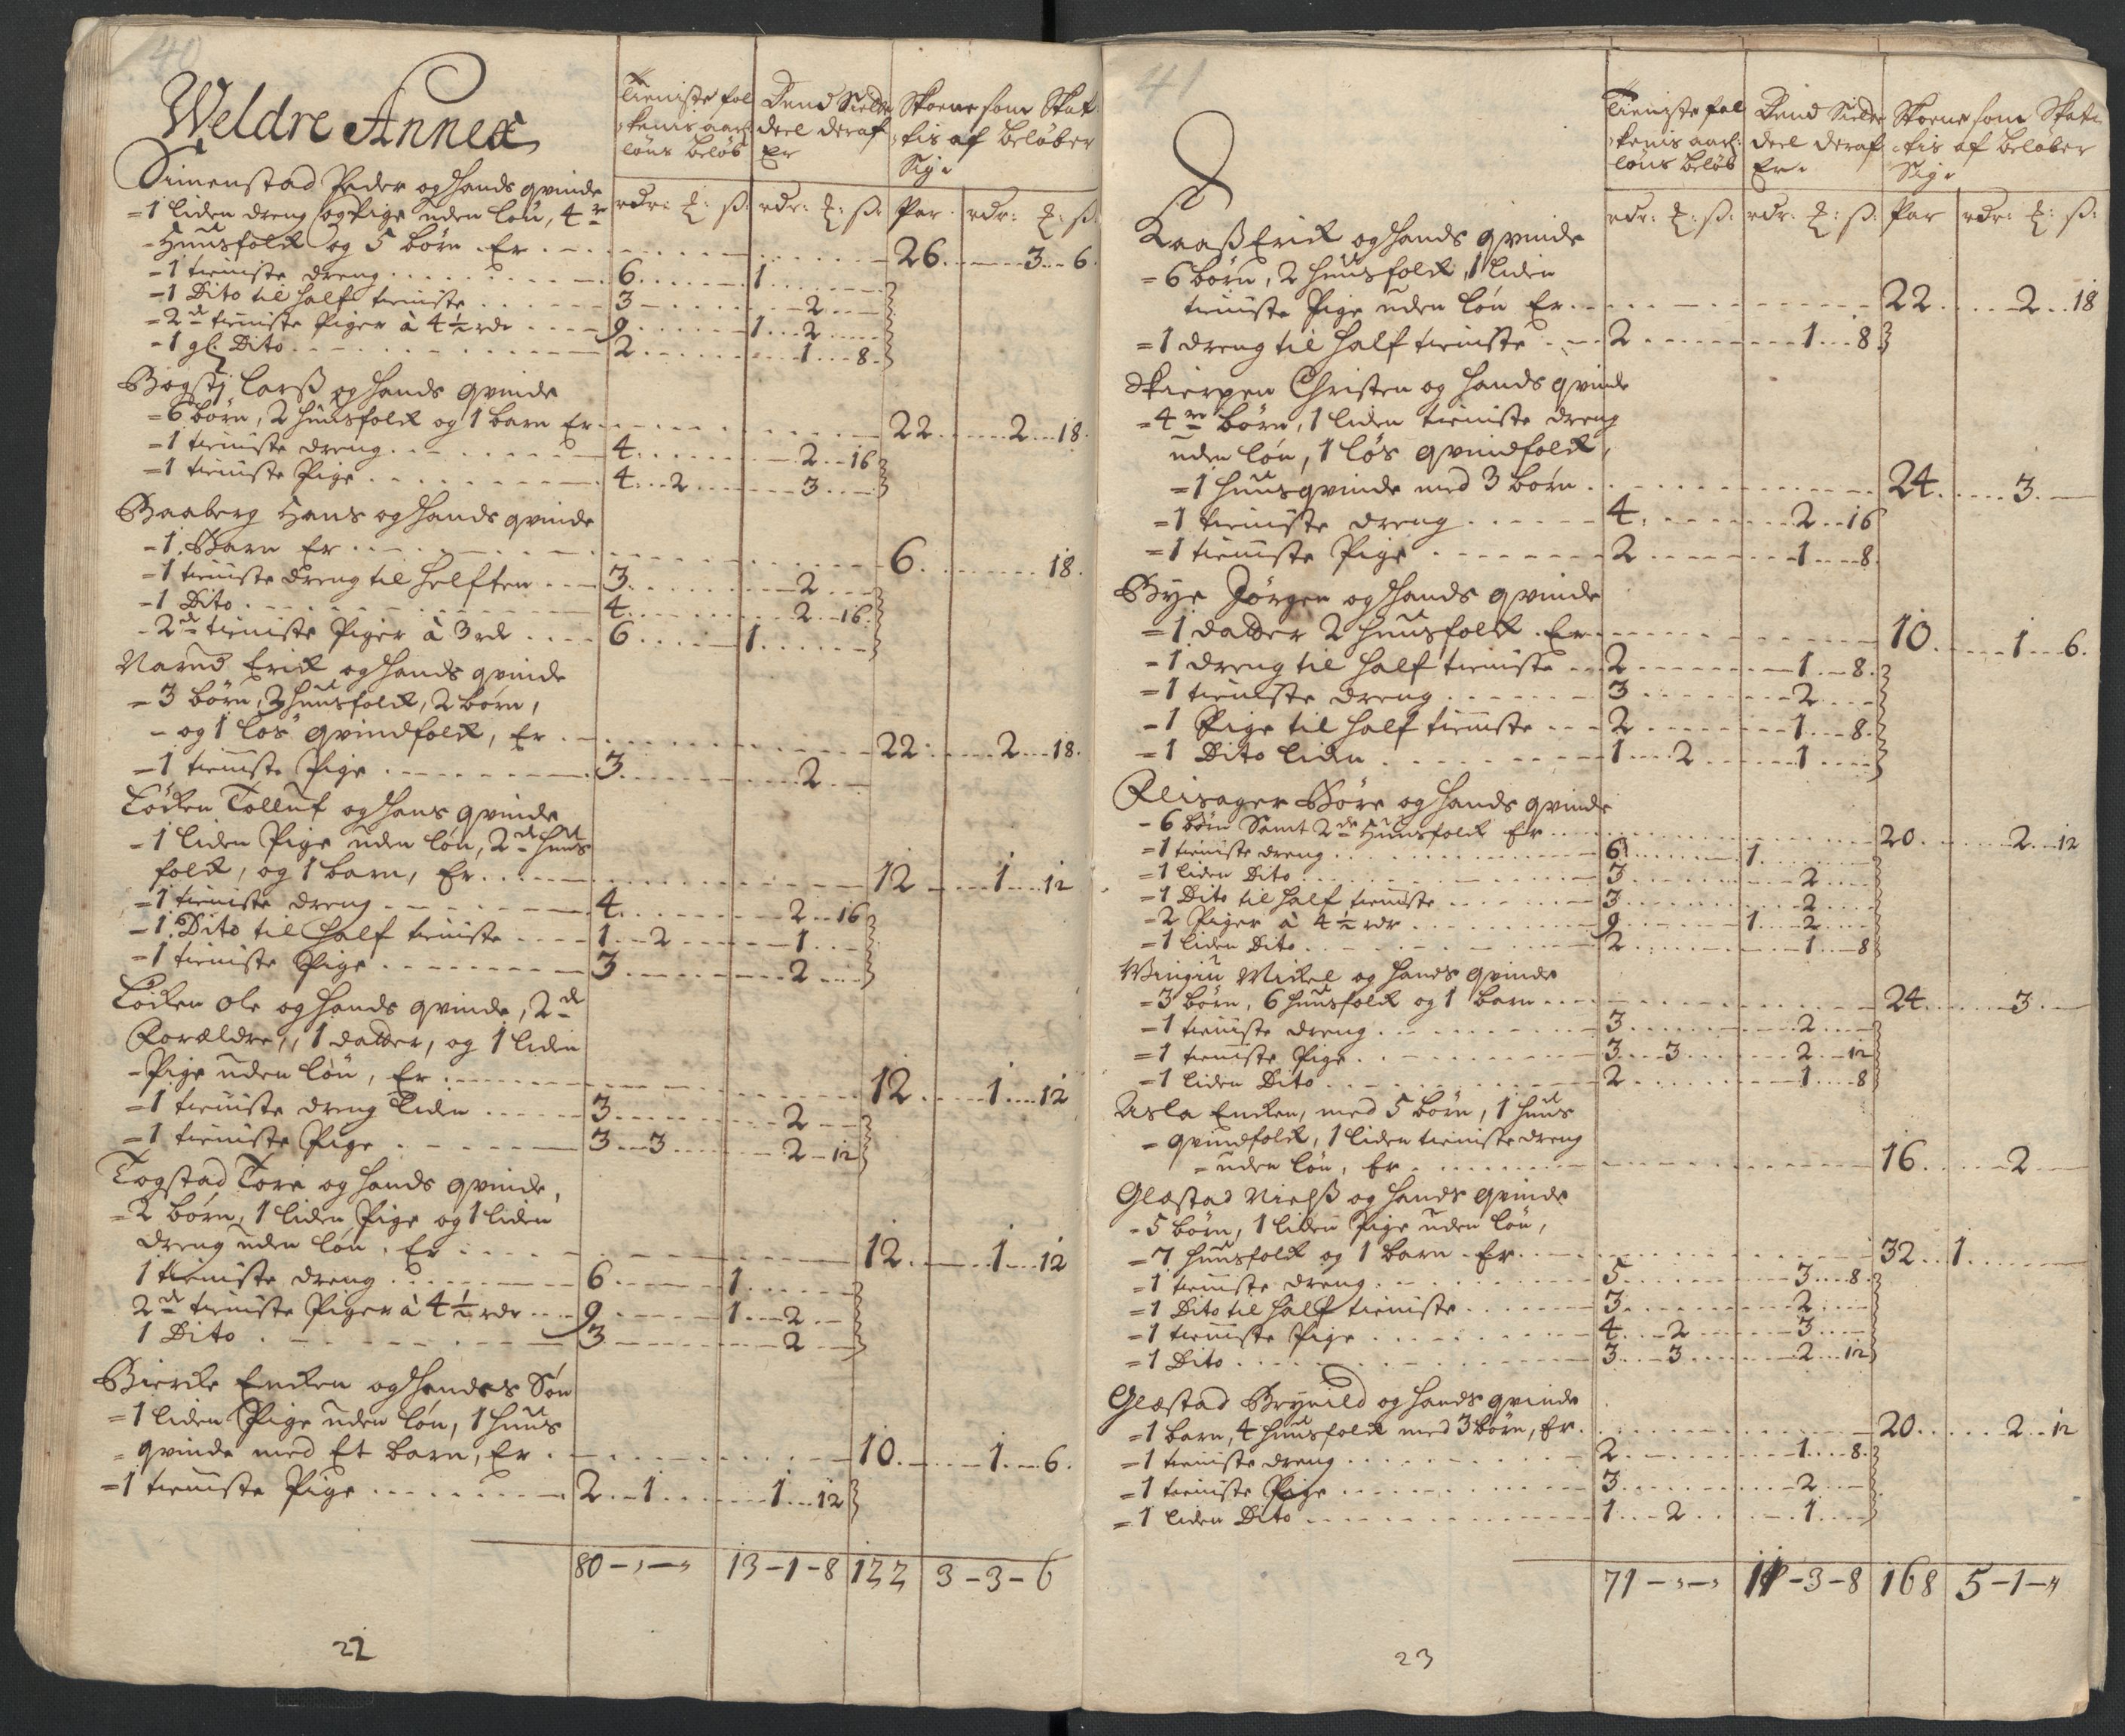 40
Weldre Annex
Tieniste fol
kenis aarl:
løns beløb
Dend Siette
deel deraf
Er
Skoene som Skat
tis af beløber
Sig:
rdr: ₰: ß: rdr: ₰: ß: Par rdr: ₰: ß:
Simenstad Peder og hands qvinde
=1 liden dreng og Pige uden løn, 4re
- Huusfolck og 5 børn Er 26 3 6
-1 tieniste dreng 6 1
-1 Dito til half tieniste 3 2
=2de tieniste Piger à 4½ rdr 9 1 2
-1 gl. Dito 2 1 8
Bogstj Larß og hands qvinde
=6 børn, 2 huusfolck og 1 barn Er 22 2 18
=1 tieniste dreng 4 2 16
=1 tieniste Pige 4 2 3
Baaberg Hans og hands qvinde
-1 Barn Er 6 18
=1 tieniste dreng til helften 3 2
-1 Dito 4 2 16
-2de tieniste Piger à 3 rdr 6 1
Narud Erick og hands qvinde
= 3 børn, 2 huusfolck, 2 børn,
- og 1 løs qvindfolck, Er 22 2 18
=1 tieniste Pige 3 2
Løcken Tolluf og hans qvinde
-1 liden Pige uden løn, 2de huus
folck, og 1 barn, Er 12 1 12
=1 tieniste dreng 4 2 16
-1 Dito til half tieniste 1 2 1
=1 tieniste Pige 3 2
Løcken Ole og hands qvinde, 2de
Forældre, 1 datter, og 1 liden
-Pige uden løn, Er 12 1 12
=1 tieniste dreng liden 3 2
=1 tieniste Pige 3 3 2 12
Togstad Tore og hands qvinde,
=2 børn, 1 liden Pige og 1 liden
dreng uden løn, Er 12 1 12
1 tieniste dreng 6 1
2de tieniste Piger à 4½ rdr 9 1 2
1 Dito 3 2
Biercke Encken og hendes Søn
=1 liden Pige uden løn, 1 huus
= qvinde med Et barn, Er 10 1 6
=1 tieniste Pige 2 1 1 12
80 - „ - „ 13-1-8 122 3-3-6
22
41
Tieniste fol
kenis aarl:
løns beløb
Dend Siette
deel deraf
Er
Skoene som Skat
tis af beløber
Sig:
rdr: ₰: ß: rdr: ₰: ß: Par rdr: ₰: ß:
Kaaß Erick og hands qvinde
=6 børn, 2 huusfolck, 1 liden
tieniste Pige uden løn Er 22 2 18
=1 dreng til half tieniste 2 1 8
Skierpen Christen og hands qvinde
=4re børn, 1 liden tieniste dreng
uden løn, 1 løs qvindfolck,
=1 huusqvinde med 3 børn 24 3
=1 tieniste dreng 4 2 16
=1 tieniste Pige 2 1 8
Bye Jørgen og hands qvinde
=1 datter 2 huusfolck Er 10 1 6
-1 dreng til half tieniste 2 1 8
=1 tieniste dreng 3 2
-1 Pige til half tieniste 2 1 8
=1 Dito liden 1 2 1
Flisager Børe og hands qvinde
-6 børn Samt 2de Huusfolck Er 20 2 12
=1 tieniste dreng 6 1
=1 liden Dito 3 2
-1 Dito til half tieniste 3 2
-2 Piger à 4½ rdr 9 1 2
=1 liden Dito 2 1 8
Wingiu Mickel og hands qvinde
=3 børn, 6 huusfolck og 1 barn 24 3
-1 tieniste dreng 3 2
=1 tieniste Pige 3 3 2 12
=1 liden Dito 2 1 8
Asla Encken, med 5 børn, 1 huus
= qvindfolck, 1 liden tieniste dreng
= uden løn, Er 16 2
Glæstad Nielß og hands qvinde
-5 børn, 1 liden Pige uden løn,
=7 huusfolck og 1 barn Er 32 1
=1 tieniste dreng 5 3 8
=1 Dito til half tieniste 3 2
=1 tieniste Pige 4 2 3
=1 Dito 3 3 2 12
Glæstad Brynild og hands qvinde
=1 barn, 4 huusfolck med 3 børn, Er 20 2 12
=1 tieniste dreng 2 1 8
=1 tieniste Pige 3 2
=1 liden Dito 1 2 1
71 - „ - „ 11-3-8 168 5-1-„
23